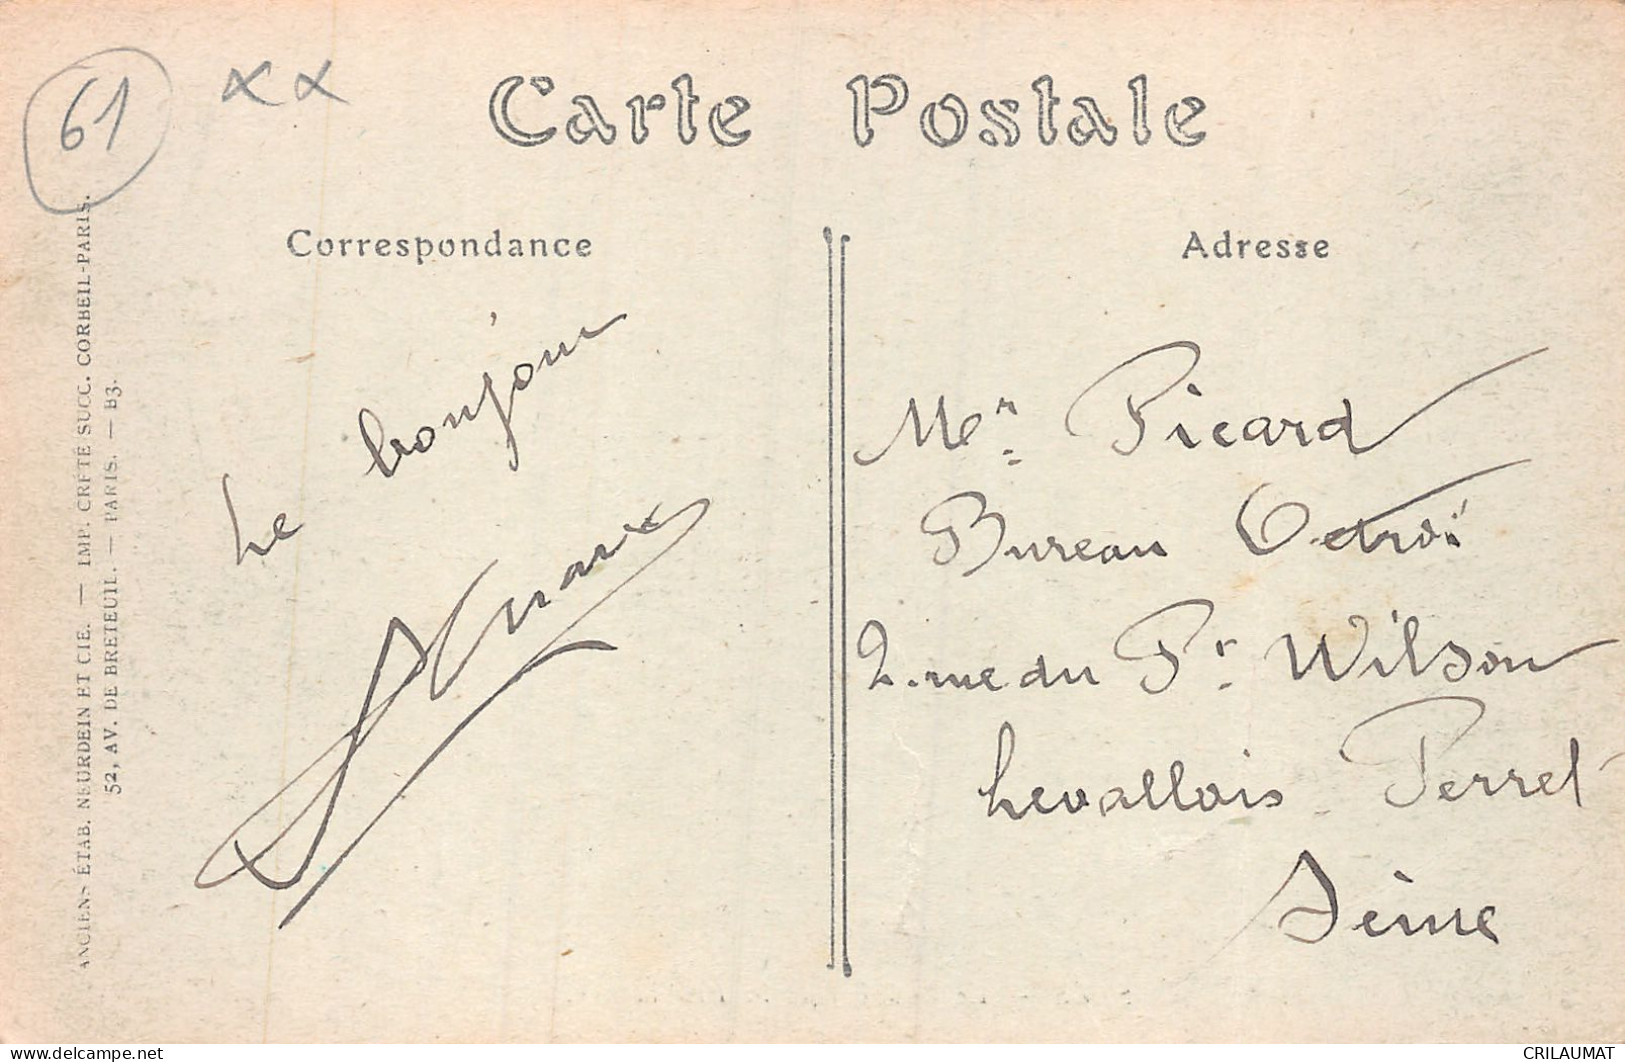 61
Carte Postale
Correspondance
Le bonjour
Adresse
Mr Picard
Bureau Octroi
2. rue du Pr. Wilson
Levallois Perret
Seine
ANCIENS ÉTAB. NEURDEIN ET CIE. — IMP. CRÉTÉ SUCC. CORBEIL-PARIS.
52, AV. DE BRETEUIL. — PARIS. — B3.
CRILAUMAT